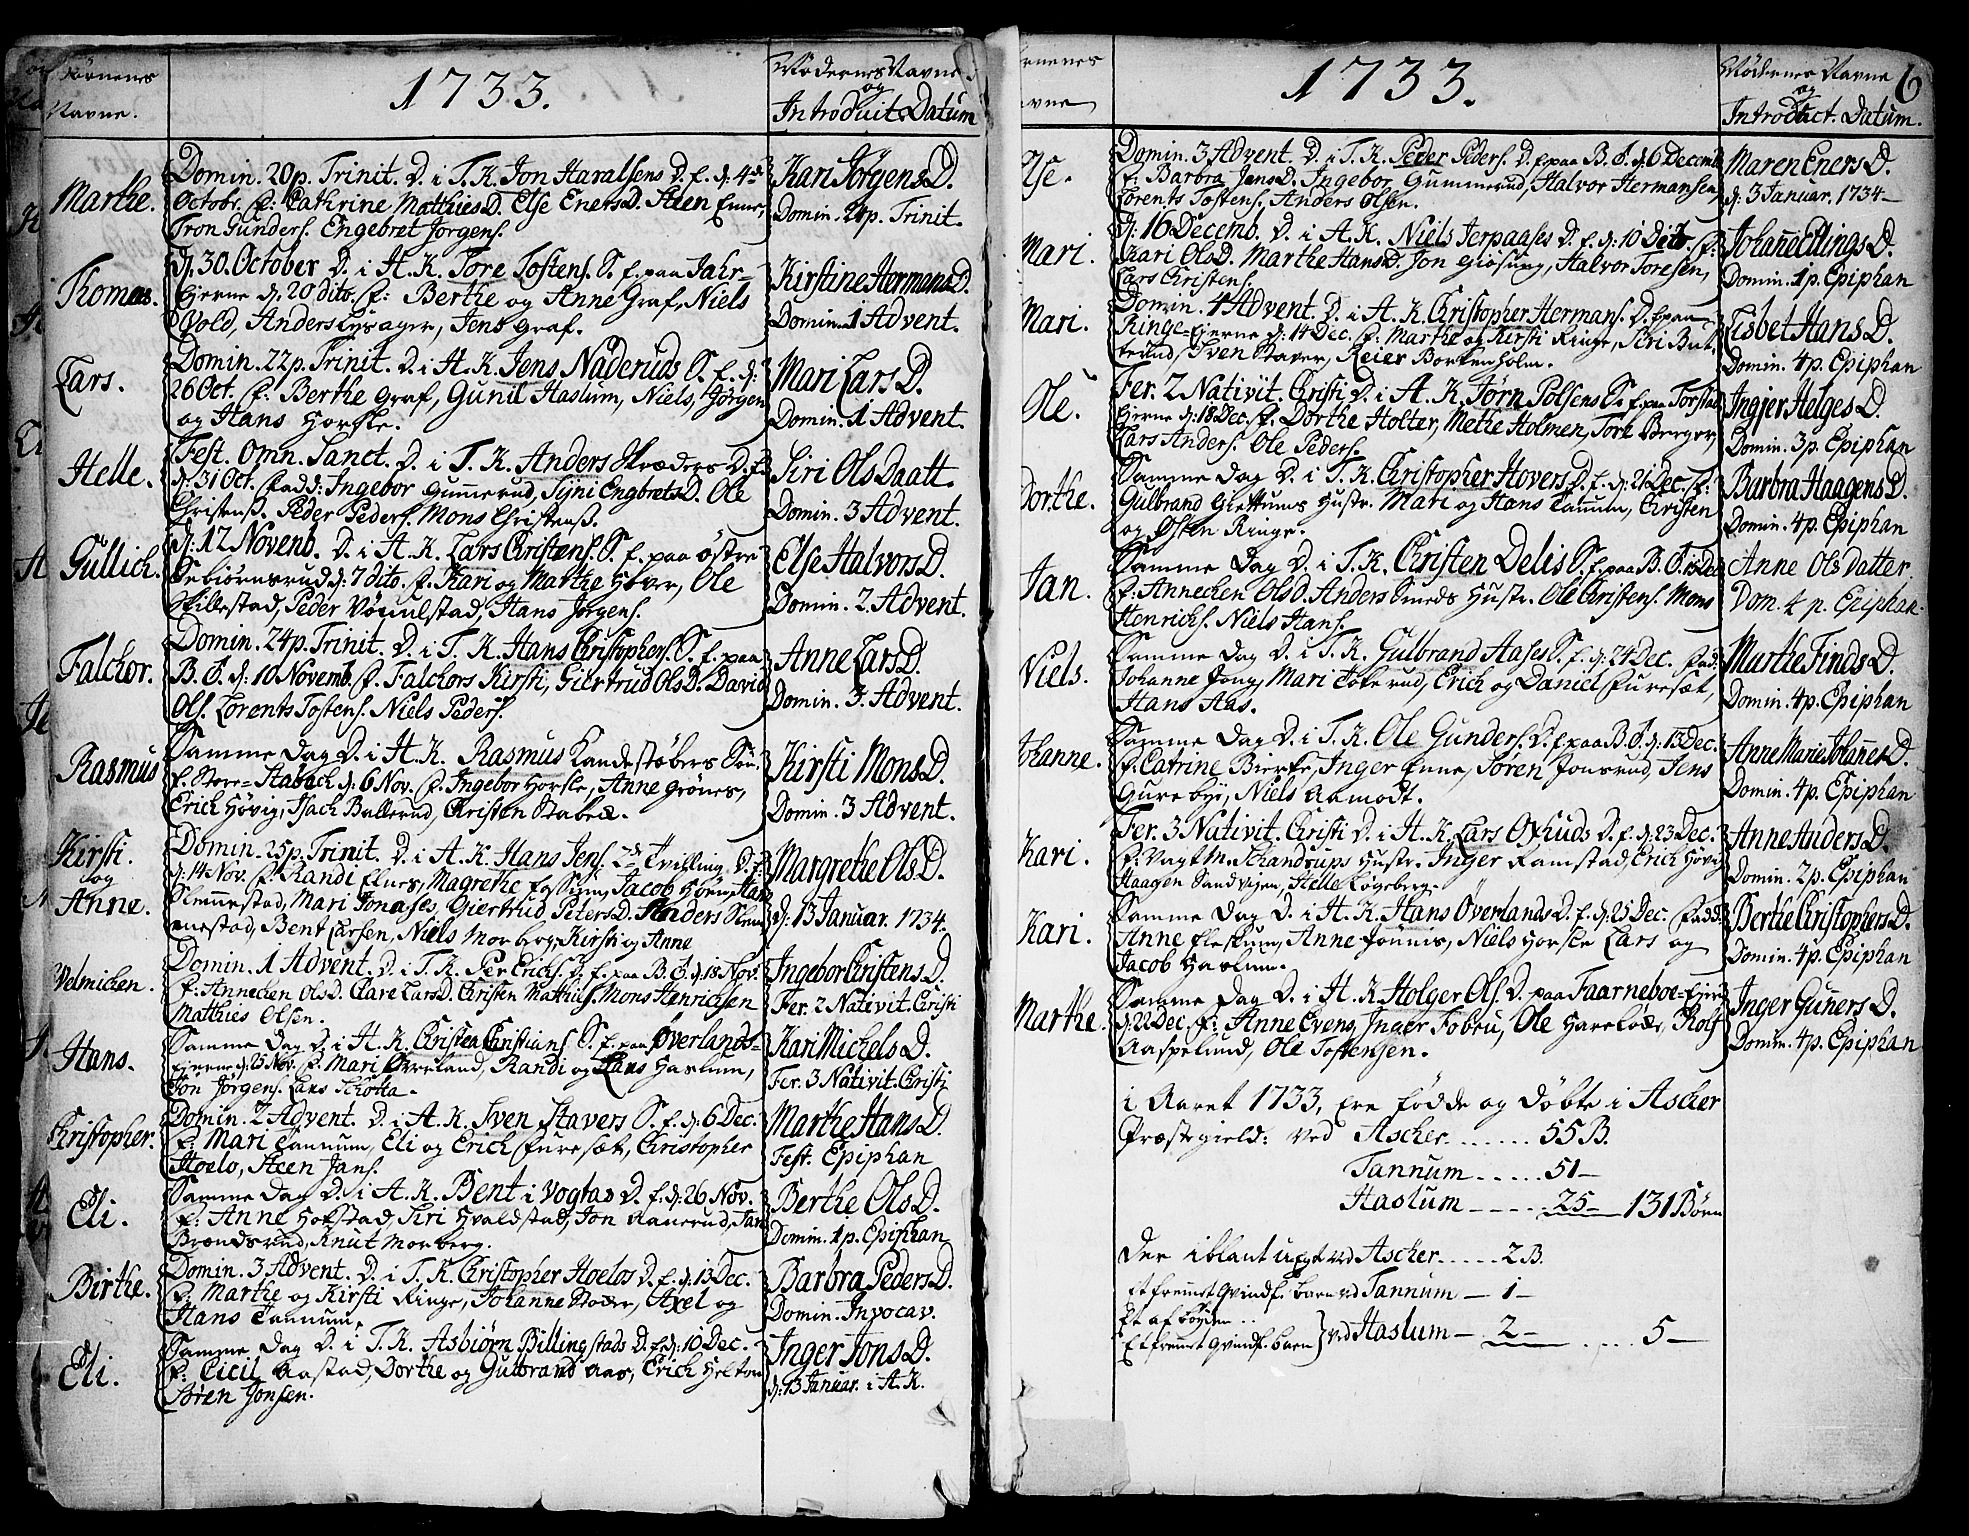 Børnenes
Navne.
1733.
Mødernes Navne
og
Introduct. Datum
Marthe.
Domin. 20 p. Trinit. D. i T. K. Jon Haralsens D. f. d. 4de
Octobr. F: Cathrine Matthies D. Else Eners D. Steen Enne,
Tron Gunders. Engebret Jørgens.
Kari Jørgens D.
Domin. 21 p. Trinit.
Thomas.
d. 30 October D. i H. K. Tore Tostens. S. f. paa Jahr=
Ejerne d. 20 dito. F: Berthe og Anne Graf, Niels
Vold, Anders Lysager, Jens Graf.
Kirstine Hermans D.
Domin. 1 Advent.
Lars.
Domin. 22 p. Trinit. D. i H. K. Jens Naderuds S. f. d:
26 Oct. F: Berthe Graf, Gunil Haslum, Niels, Jørgen
og Hans Horsle.
Mari Lars D.
Domin. 1 Advent.
Helle.
Fest. Omn. Sanct. D. i T. K. Anders Skræders D. f.
d. 31 Oct. Fadd: Ingebor Gunnerud, Sijni Engbrets D. Ole
Christens. Peder Peders. Mons Christens.
Siri Ols Daatt.
Domin. 3 Advent.
Gullich.
d. 12 Novemb. D. i A. K. Lars Christens. S. f. paa østre
Sebiørnsrud d: 7 dito. F. Kari og Marthe Hover, Ole
Skillestad, Peder Vøijulstad, Hans Jørgens.
Else Halvors D.
Domin. 2. Advent.
Falchor.
Domin. 24 p. Trinit. D. i T. K. Hans Christophers. S. f. paa
B. J. d: 10 Novemb. F. Falchors Kirsti, Giertrud Ols D. David
Ols. Lorents Tostens. Niels Peders.
Anne Lars D.
Domin. 3. Advent.
Rasmus
Samme Dag D. i H. K. Rasmus Kandestøbers Søn.
f. Store=Stabech d: 6 Nov. F. Ingebor Horsle, Anne Grønes,
Erich Høvig, Isach Ballerud, Christen Stabæc.
Kirsti Mons D.
Domin. 3 Advent.
Kirsti.
og
Anne.
Domin. 25 p. Trinit. D. i A. K. Hans Jens. 2de Tvilling. D. f.
d: 14 Nov. F. Randi Elnes, Magrethe Fossum, Jacob Høen, Hans
Slemmestad, Mari Jonases, Giertrud Peters D. Anders Slem
mestad, Bent Larsen, Niels Morberg, Kirsti og Anne
Margrethe Ols D.
d: 13 Januar. 1734.
Velmichen.
Domin. 1 Advent. D. i T. K. Per Erichs. D. f. paa B. J. d: 18 Nov.
F: Annechen Ols D. Clare Lars D. Christen Mathies. Mons Henrichsen
Matthies Olsen.
Ingebor Christens D.
Fer. 2 Nativit. Christi
Hans.
Samme Dag D. i H. K. Christen Christians S. f. paa Øverlands=
Ejerne d: 25 Nov. F. Mari Øvreland, Randi og Lars Haslum,
Jon Jørgens. Lars Schotta.
Kari Michels D.
Fer. 3 Nativit. Christi
Christopher.
Domin. 2 Advent. D. i A. K. Sven Stavers S. f. d: 6 Dec.
F: Mari Tannum, Eli og Erich Furesæt, Christopher
Hoelo, Steen Jans.
Marthe Hans D.
Fest. Epiphan
Eli.
Samme Dag D. i A. K. Bent i Vogtas D. f. d: 26 Nov.
F: Anne Hofstad, Siri Hvaldstad, Jon Aanerud, Jan
Brendsrud, Knut Morberg.
Berthe Ols D.
Domin. 1 p. Epiphan
Birthe.
Domin. 3 Advent. D. i T. K. Christopher Hoelos D. f. d: 13 Dec.
F: Marthe og Kirsti Ringe, Johanne Stader, Axel og
Hans Tannum.
Barbra Peders D.
Domin. Invocav.
Eli.
Samme Dag D. i T. K. Asbiørn Billingstads D. f. d: 10 Dec.
F: Cicil Aastad, Dorthe og Gulbrand Aas, Erich Helton
Søren Jonsen.
Inger Jons D.
d: 13 Januar. i A. K.
rnenes
avne
1733.
Mødernes Navne
og
Introduct. Datum.
6
Ilse.
Domin. 3 Advent. D. i T. K. Peder Peders. D. f. paa B. J. d: 6 Decemb
F: Barbra Jens D. Ingebor Gunnerud, Halvor Hermansen,
Lorents Tostens. Anders Olsen.
Maren Eners D.
d: 3 Januar. 1734
Mari.
d: 16 Decemb. D. i A. K. Niels Jerpaases D. f. d: 10 Dito. F:
Kari Ols D. Marthe Hans D. Jon Giøsung, Halvor Toresen,
Lars Christens.
Johan̄e Ellings D.
Domin. 1 p. Epiphan
Mari.
Domin. 4 Advent. D. i A. K. Christopher Hermans. D. f. paa
Ringe=Ejerne d: 14 Dec. F: Marthe og Kirsti Ringe, Siri But,
terud, Sven Staver, Reier Borkenholm.
Lisbet Hans D.
Domin. 4 p. Epiphan
Ole.
Fer. 2 Nativit. Christi D. i A. K. Jørn Polsens S. f. paa Torstad
Ejerne d: 18 Dec. F. Dorthe Holter, Methe Holmen, Tore Berger,
Lars Anders. Ole Peders.
Ingjer Helges D.
Domin. 3 p. Epiphan
Dorthe.
Samme Dag D. i T. K. Christopher Hovers D. f. d: 21 Dec. F:
Gulbrand Glettums Hustr. Mari og Hans Tannum, Christen
og Østen Ringe.
Barbra Haagens D.
Domin. 4 p. Epiphan
Jan.
Samme Dag D. i T. K. Christen Delis S. f. paa B. J. 15 Dec
F: Annechen Ols D. Anders Smeds Hustr. Ole Christens. Mons
Henrichs. Niels Hans.
Anne Ols Datter
Dom. 4 p. Epiphan.
Niels.
Samme Dag D. i T. K. Gulbrand Aases S. f. d: 24 Dec. Fad:
Johanne Jong, Mari Tofterud, Erich og Daniel Furesæt,
Hans Aas.
Marthe Finds D.
Domin. 4 p. Epiphan
Johanne.
Samme Dag D. i T. K. Ole Gunders. D. f. paa B. J. d: 13 Dec.
F: Catrine Bierke, Inger Enne, Søren Jonsrud, Jens
Gurebye, Niels Aamodt.
Anne Marie Johannes D.
Domin. 4 p. Epiphan
Kari.
Fer. 3 Nativit. Christi D. i H. K. Lars Oxhuds D. f. d: 23 Dec.
F: Vagt M. Schandrups Hustr. Inger Ramstad, Erich Høvig
Haagen Sandvigen, Helle Løgeberg.
Anne Anders D.
Domin. 2 p. Epiphan
Kari.
Samme Dag D. i H. K. Hans Øverlands D. f. d: 25 Dec. Fadd:
Anne Fleskum, Anne Jonnis, Niels Horsle Lars og
Jacob Haslum.
Berthe Christophers D.
Domin. 4 p. Epiphan
Marthe.
Samme Dag D. i H. K. Holger Ols. D. paa Faarneboe=Ejer
d: 22 Dec. F: Anne Evens, Inger Jobru, Ole Hareløes, Rolf
Aaspelund, Ole Tostensen.
Inger Gun̄ers D.
Domin. 4 p. Epiphan
i Aaret 1733, ere fødde og døbte i Ascher
Præstegield: ved Ascher....... 55 B.
Tannum ..... 51 —
Haslum ----- 25 — 131 Børn
Der iblant uægt ved Ascher..... 2 B.
Et fremmet Qvindf. barn ved Tannum — 1 —
Et af bøyden ..
Et fremmet Qvindf. barn } ved Haslum — 2 — .... 5 —